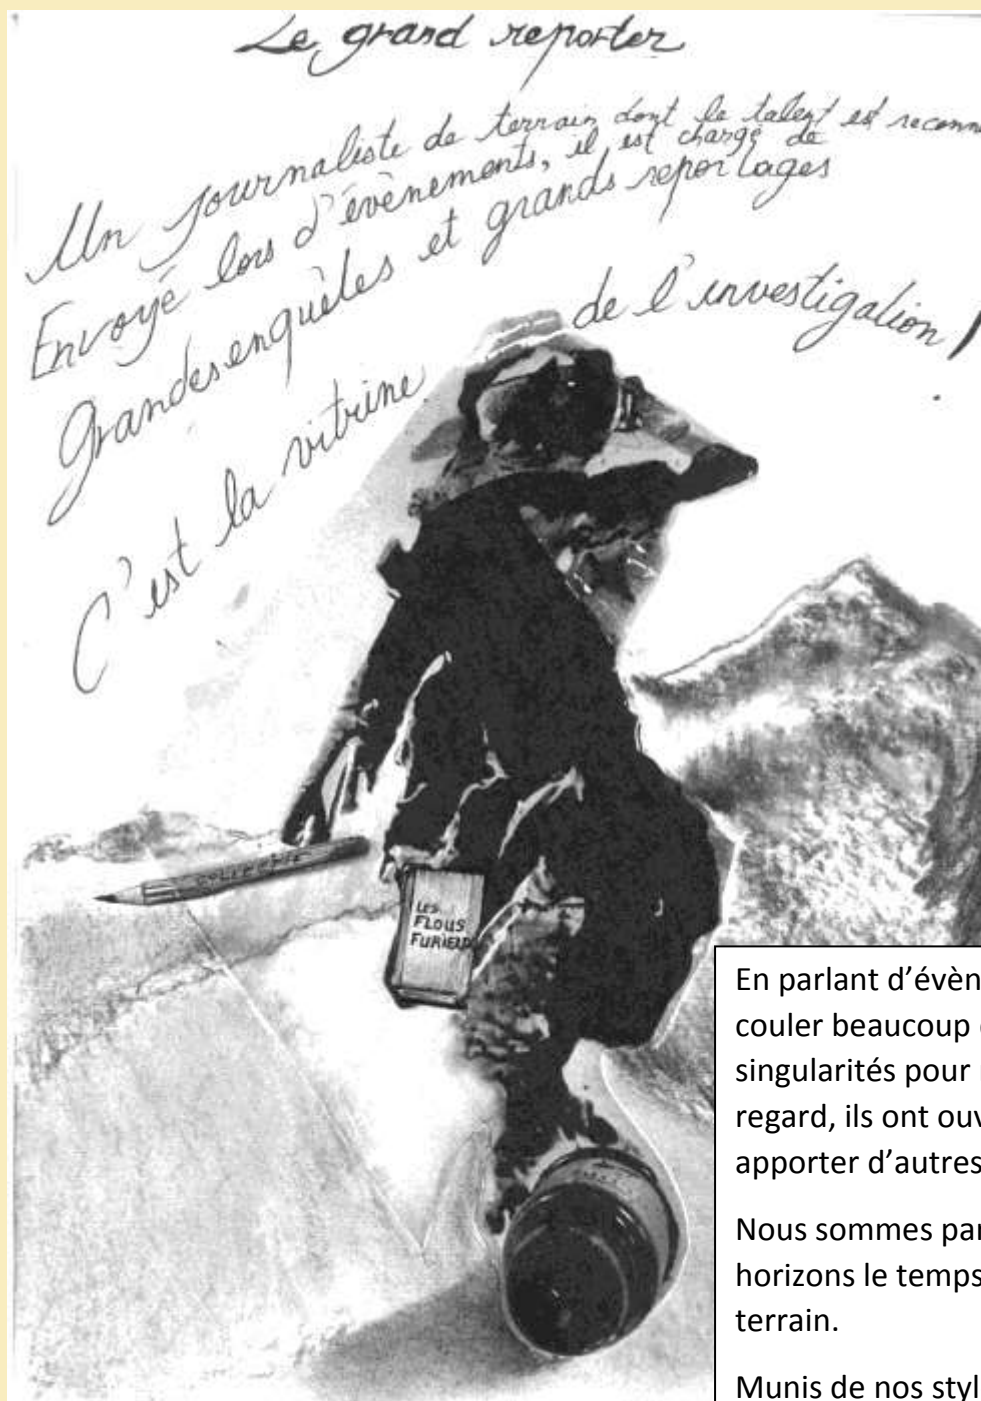 Le grand reporter
Un journaliste de terrain dont le talent est reconnu
Envoyé lors d'évènements, il est chargé de
Grandes enquêtes et grands reportages
C'est la vitrine de l'investigation !
LES
FLOUS
FURIEUX
En parlant d'évèn
couler beaucoup
singularités pour
regard, ils ont ouv
apporter d'autres
Nous sommes par
horizons le temps
terrain.
Munis de nos styl